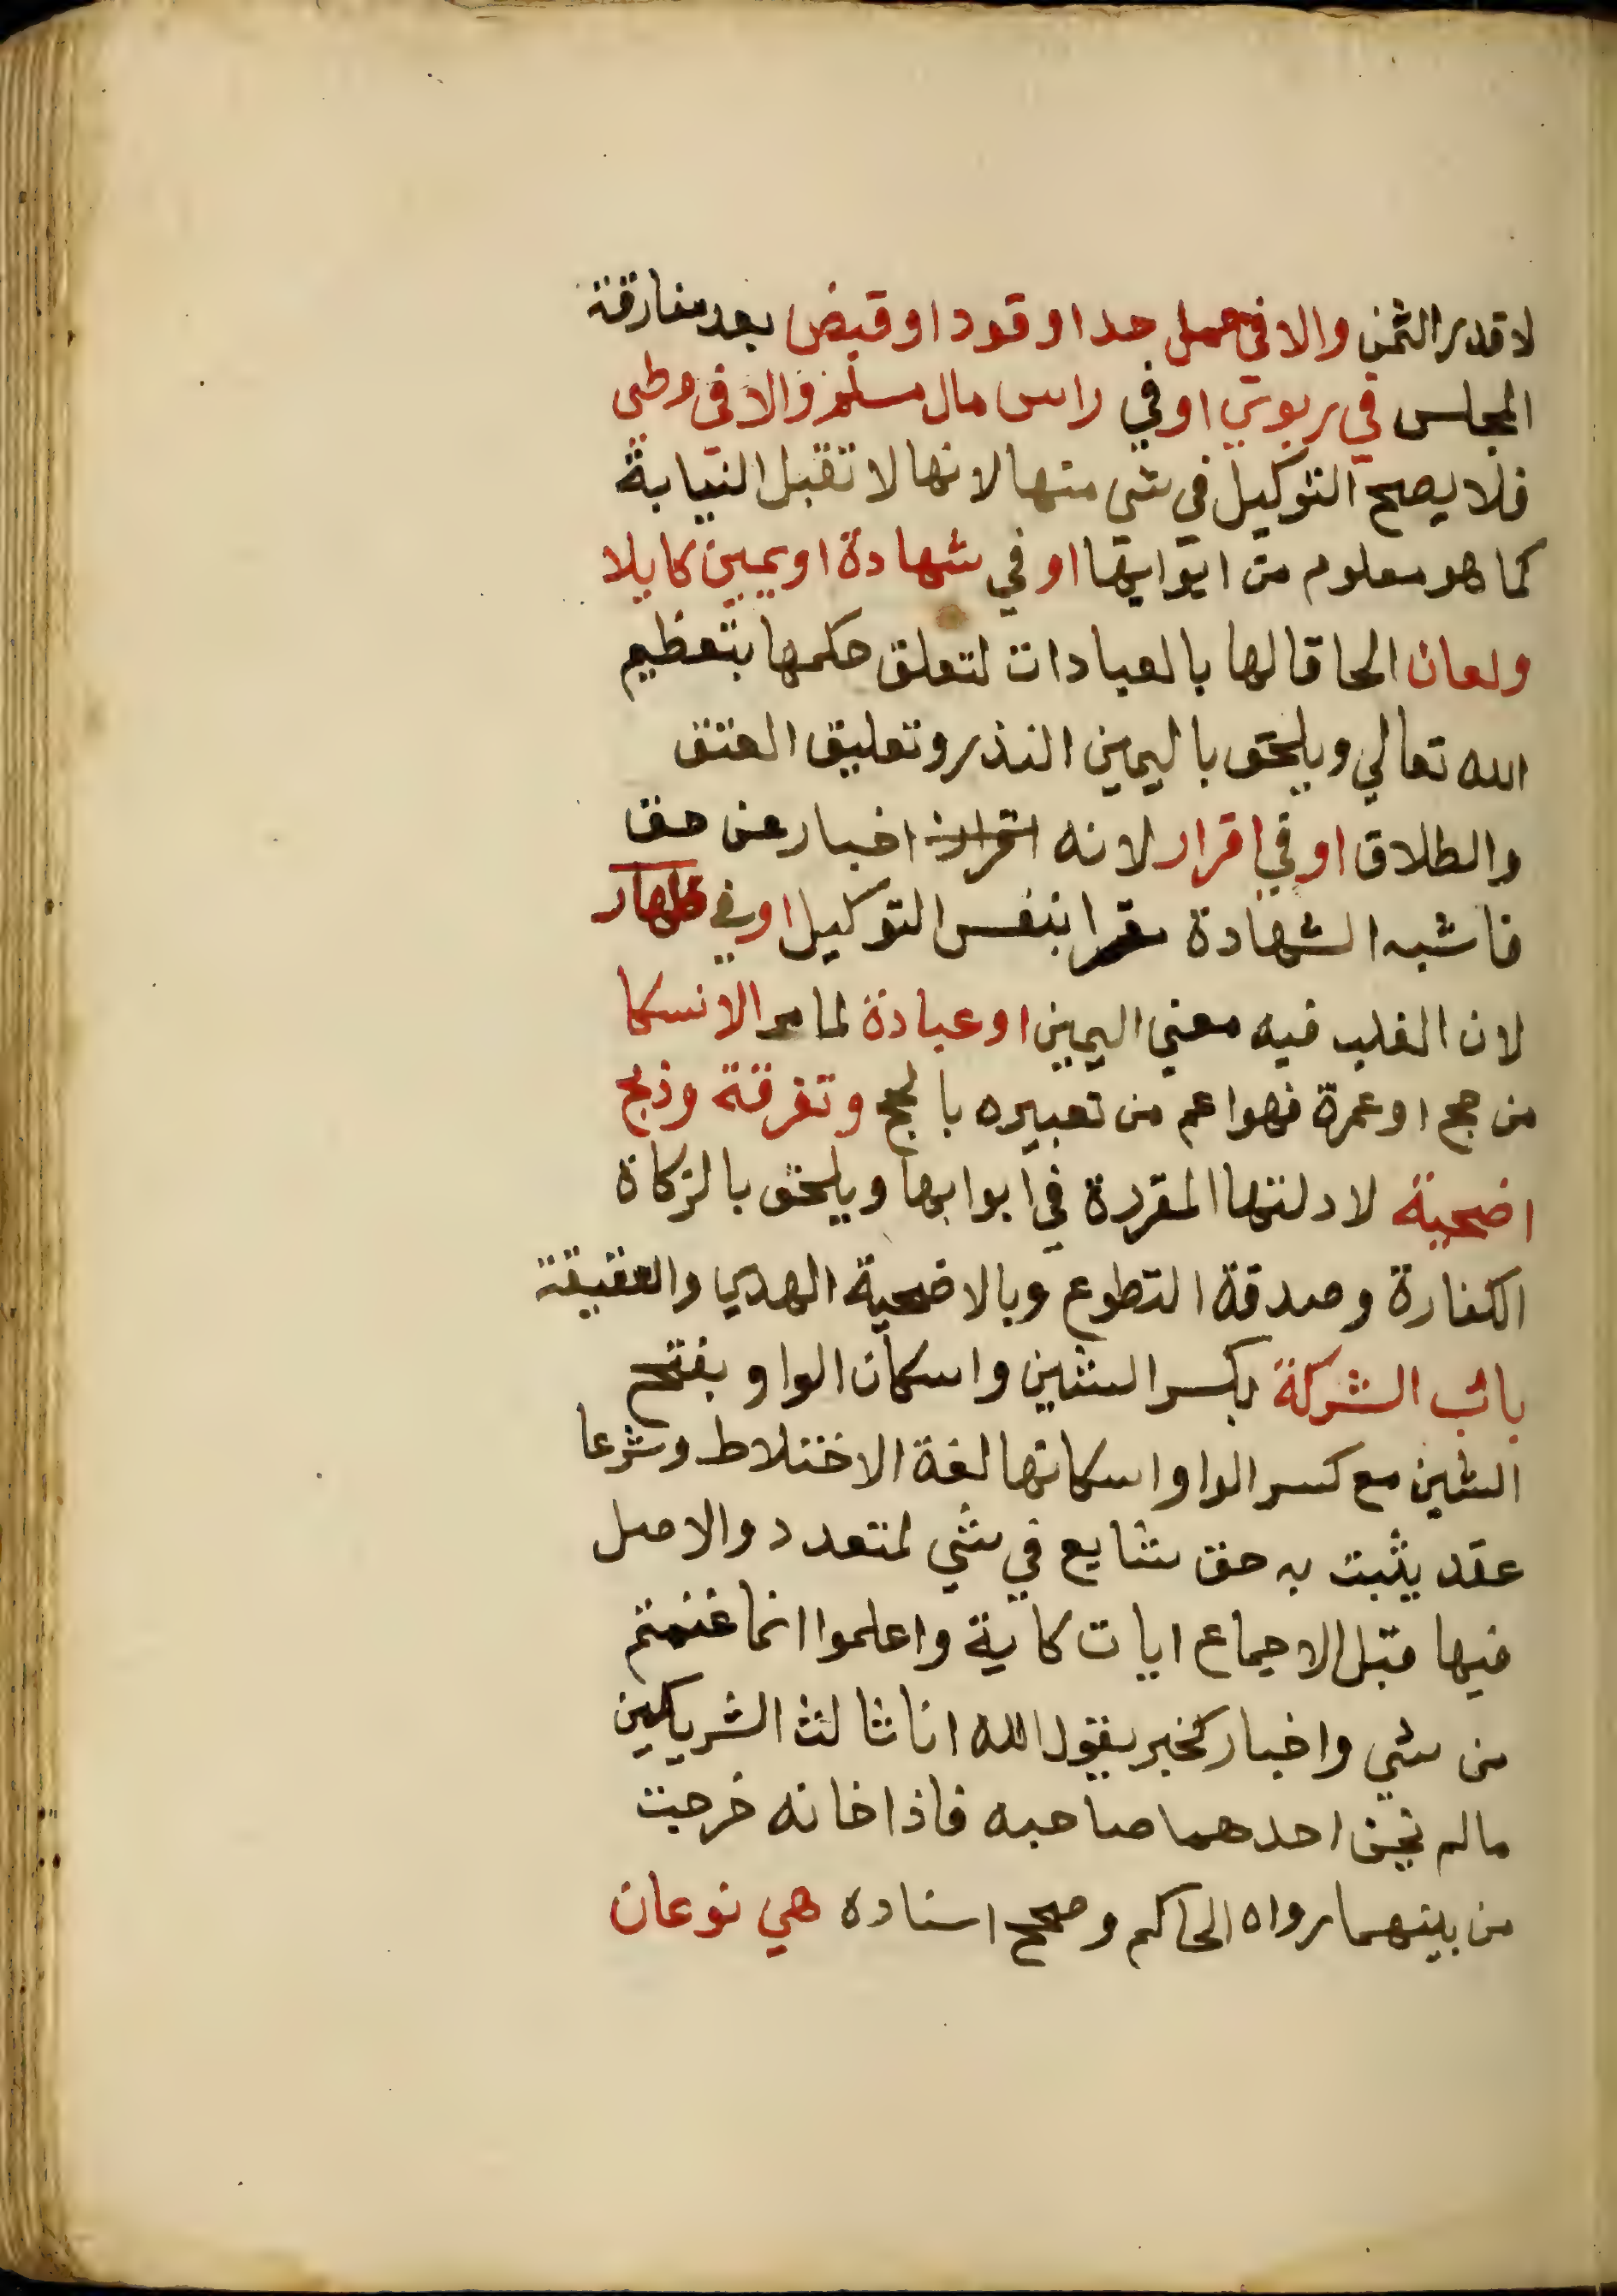 لا قدر الثمن والا في حمل حد او قود او قبض بعد مفارقة
المجلس في ربوي او في راس مال مسلم والا في وطى
فلا يصح التوكيل في شي منها لانها لا تقبل النيابة
كما هو معلوم من ابوابها او في شهادة او يمين كايلا
ولعان الحاقا لها بالعبادات لتعلق حكمها بتعظيم
الله تعالي ويلحق باليمين النذر وتعليق العتق
والطلاق او في اقرار لانه اخبار عن حق
فاشبه الشهادة مقرا بنفس التوكيل او في ظهار
لان الغلب فيه معني اليمين او عبادة لما مر الا نسكا
من حج او عمرة فهو اعم من تعبيره بالحج وتفرقة وذبح
اضحية لادلتها المقررة في ابوابها ويلحق بالزكاة
الكفارة وصدقة التطوع وبالاضحية الهدي والعقيقة
باب الشركة بكسر الشين واسكان الواو وبفتح
الشين مع كسر الواو اسكانها لغة الاختلاط وشرعا
عقد يثبت به حق شايع في شي لمتعدد والاصل
فيها قبل الاجماع ايات كاية واعلموا انما غنمتم
من شي واخبار كخبر يقول الله انا ثالث الشريكين
ما لم يخن احدهما صاحبه فاذا خانه خرجت
من بينهما رواه الحاكم وصحح اسناده هي نوعان